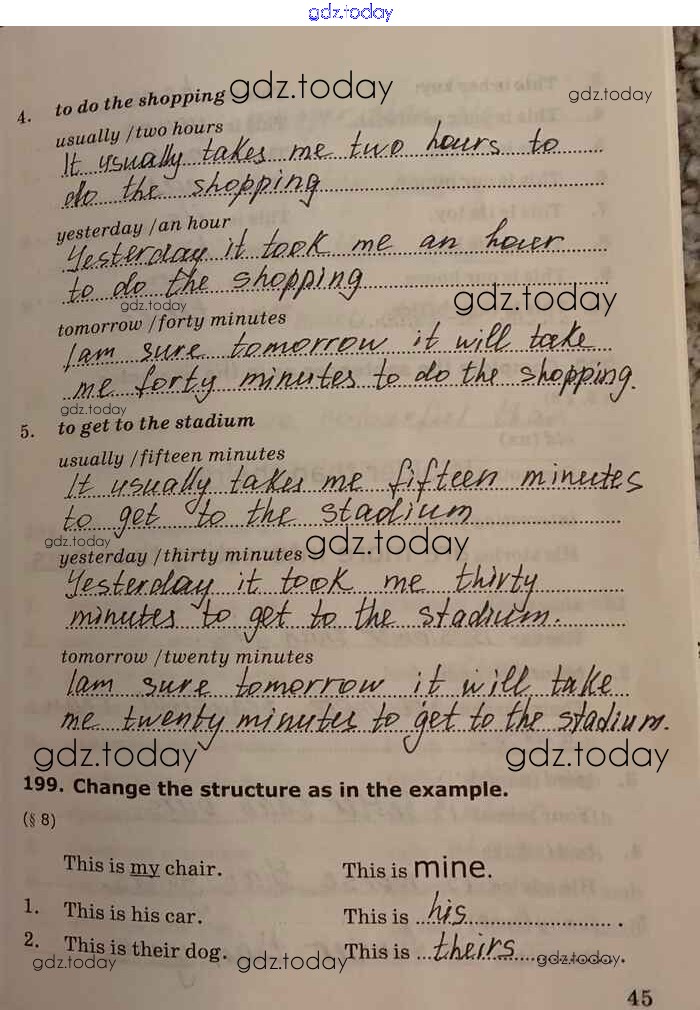 gdz.today
4. to do the shopping gdz.today gdz.today
usually /two hours
It usually takes me two hours to
do the shopping
yesterday /an hour
Yesterday it took me an hour
to do the shopping
gdz.today gdz.today
tomorrow /forty minutes
I am sure tomorrow it will take
me forty minutes to do the shopping.
gdz.today
5. to get to the stadium
usually /fifteen minutes
It usually takes me fifteen minutes
to get to the stadium
gdz.today
yesterday /thirty minutes gdz.today
Yesterday it took me thirty
minutes to get to the stadium.
tomorrow /twenty minutes
I am sure tomorrow it will take
me twenty minutes to get to the stadium.
gdz.today gdz.today
199. Change the structure as in the example.
(§ 8)
This is my chair. This is mine.
1. This is his car. This is his.
2. This is their dog. This is theirs.
gdz.today gdz.today gdz.today
45